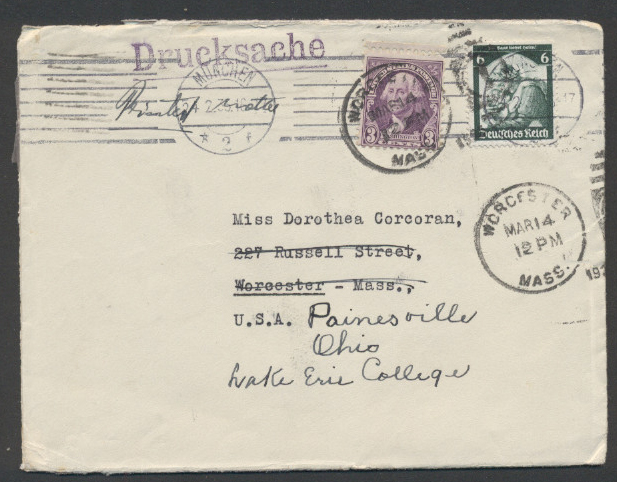 Drucksache
Printed matter
MÜNCHEN
2
3
WORCESTER
MASS.
6 6
Deutsches Reich
17
Miss Dorothea Corcoran,
227 Russell Street,
Worcester - Mass.,
U.S.A. Painesville
Ohio
Lake Erie College
WORCESTER
MAR 14
12 PM
MASS.